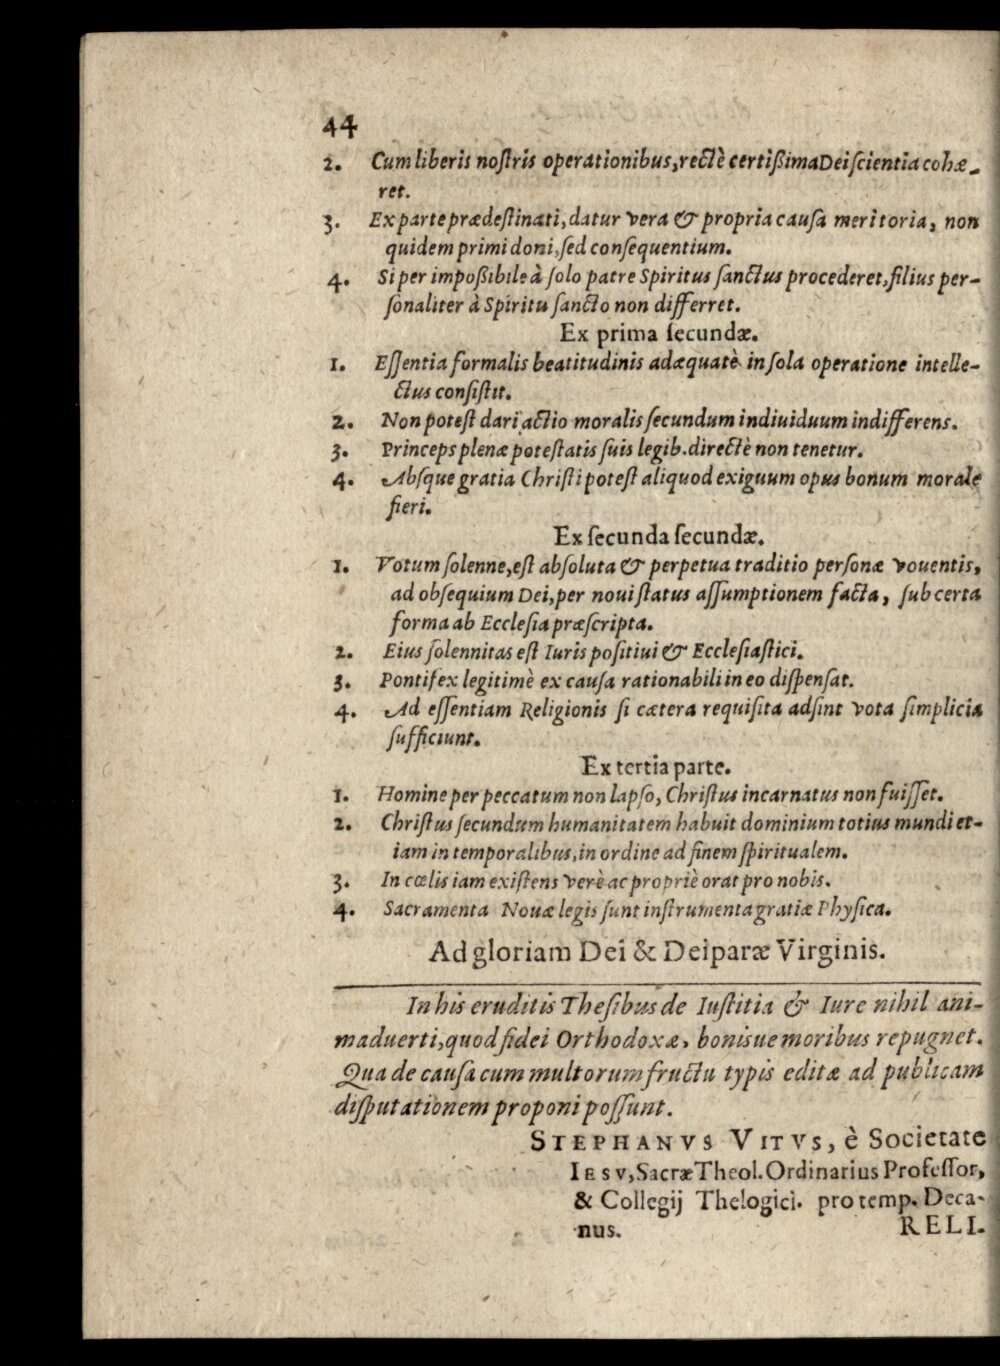 44
2. Cum liberis noſtris operationibus, rectè certißima Dei ſcientia cohæ-
ret.
3. Ex parte prædeſtinati, datur vera & propria cauſa meritoria, non
quidem primi doni, ſed conſequentium.
4. Si per impoßibile à ſolo patre Spiritus ſanctus procederet, filius per-
ſonaliter à Spiritu ſancto non differret.
Ex prima ſecundæ.
1. Eſſentia formalis beatitudinis adæquatè in ſola operatione intelle-
ctus conſiſtit.
2. Non poteſt dari actio moralis ſecundum indiuiduum indifferens.
3. Princeps plenæ poteſtatis ſuis legib. directè non tenetur.
4. Abſque gratia Chriſti poteſt aliquod exiguum opus bonum morale
fieri.
Ex ſecunda ſecundæ.
1. Votum ſolenne, eſt abſoluta & perpetua traditio perſonæ vouentis,
ad obſequium Dei, per noui ſtatus aſſumptionem facta, ſub certa
forma ab Eccleſia præſcripta.
2. Eius ſolennitas eſt Iuris poſitiui & Eccleſiaſtici.
3. Pontifex legitimè ex cauſa rationabili in eo diſpenſat.
4. Ad eſſentiam Religionis ſi cætera requiſita adſint vota ſimplicia
ſufficiunt.
Ex tertia parte.
1. Homine per peccatum non lapſo, Chriſtus incarnatus non fuiſſet.
2. Chriſtus ſecundum humanitatem habuit dominium totius mundi et-
iam in temporalibus, in ordine ad finem ſpiritualem.
3. In cœlis iam exiſtens verè ac propriè orat pro nobis.
4. Sacramenta Nouæ legis ſunt inſtrumenta gratiæ Phyſica.
Ad gloriam Dei & Deiparæ Virginis.
In his eruditis Theſibus de Iuſtitia & Iure nihil ani-
maduerti, quod fidei Orthodoxæ, bonisue moribus repugnet.
Qua de cauſa cum multorum fructu typis editæ ad publicam
diſputationem proponi poſſunt.
STEPHANVS VITVS, è Societate
IESV, Sacræ Theol. Ordinarius Profeſſor,
& Collegij Thelogici. pro temp. Deca-
nus. RELI-